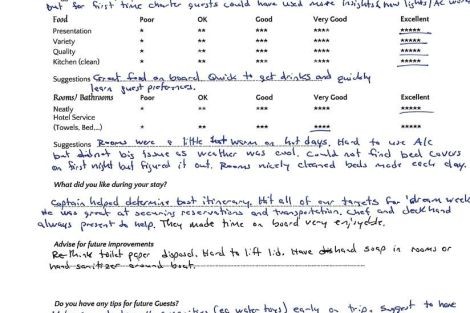 but for first time charter guests could have used more insights how lights/AC work
Food Poor OK Good Very Good Excellent
Presentation * ** *** **** *****
Variety * ** *** **** *****
Quality * ** *** **** *****
Kitchen (clean) * ** *** **** *****
Suggestions Great food on board. Quick to get drinks and quickly
learn guest preferences.
Rooms/ Bathrooms Poor OK Good Very Good Excellent
Neatly * ** *** **** *****
Hotel Service
(Towels, Bed...) * ** *** **** *****
Suggestions Rooms were a little warm on hot days. Hard to use A/C
but didnot big issue as weather was cool. Could not find bed covers
on first night but figured it out. Rooms nicely cleaned beds made each day.
What did you like during your stay?
Captain helped determine best itinerary. Hit all of our targets for "dream week
He was great at securing reservations and transportation. Chef and deckhand
always present to help. They made time on board very enjoyable.
Advise for future improvements
Re-think toilet paper disposal. Hard to lift lid. Have hand soap in rooms or
hand sanitizer around boat.
Do you have any tips for future Guests?
(eg water toys) early on trip. Suggest to have